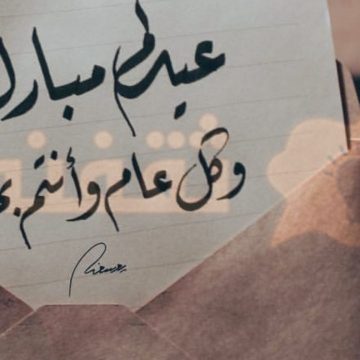 عيدكم مبارك
وكل عام وأنتم بخ
ثقفني